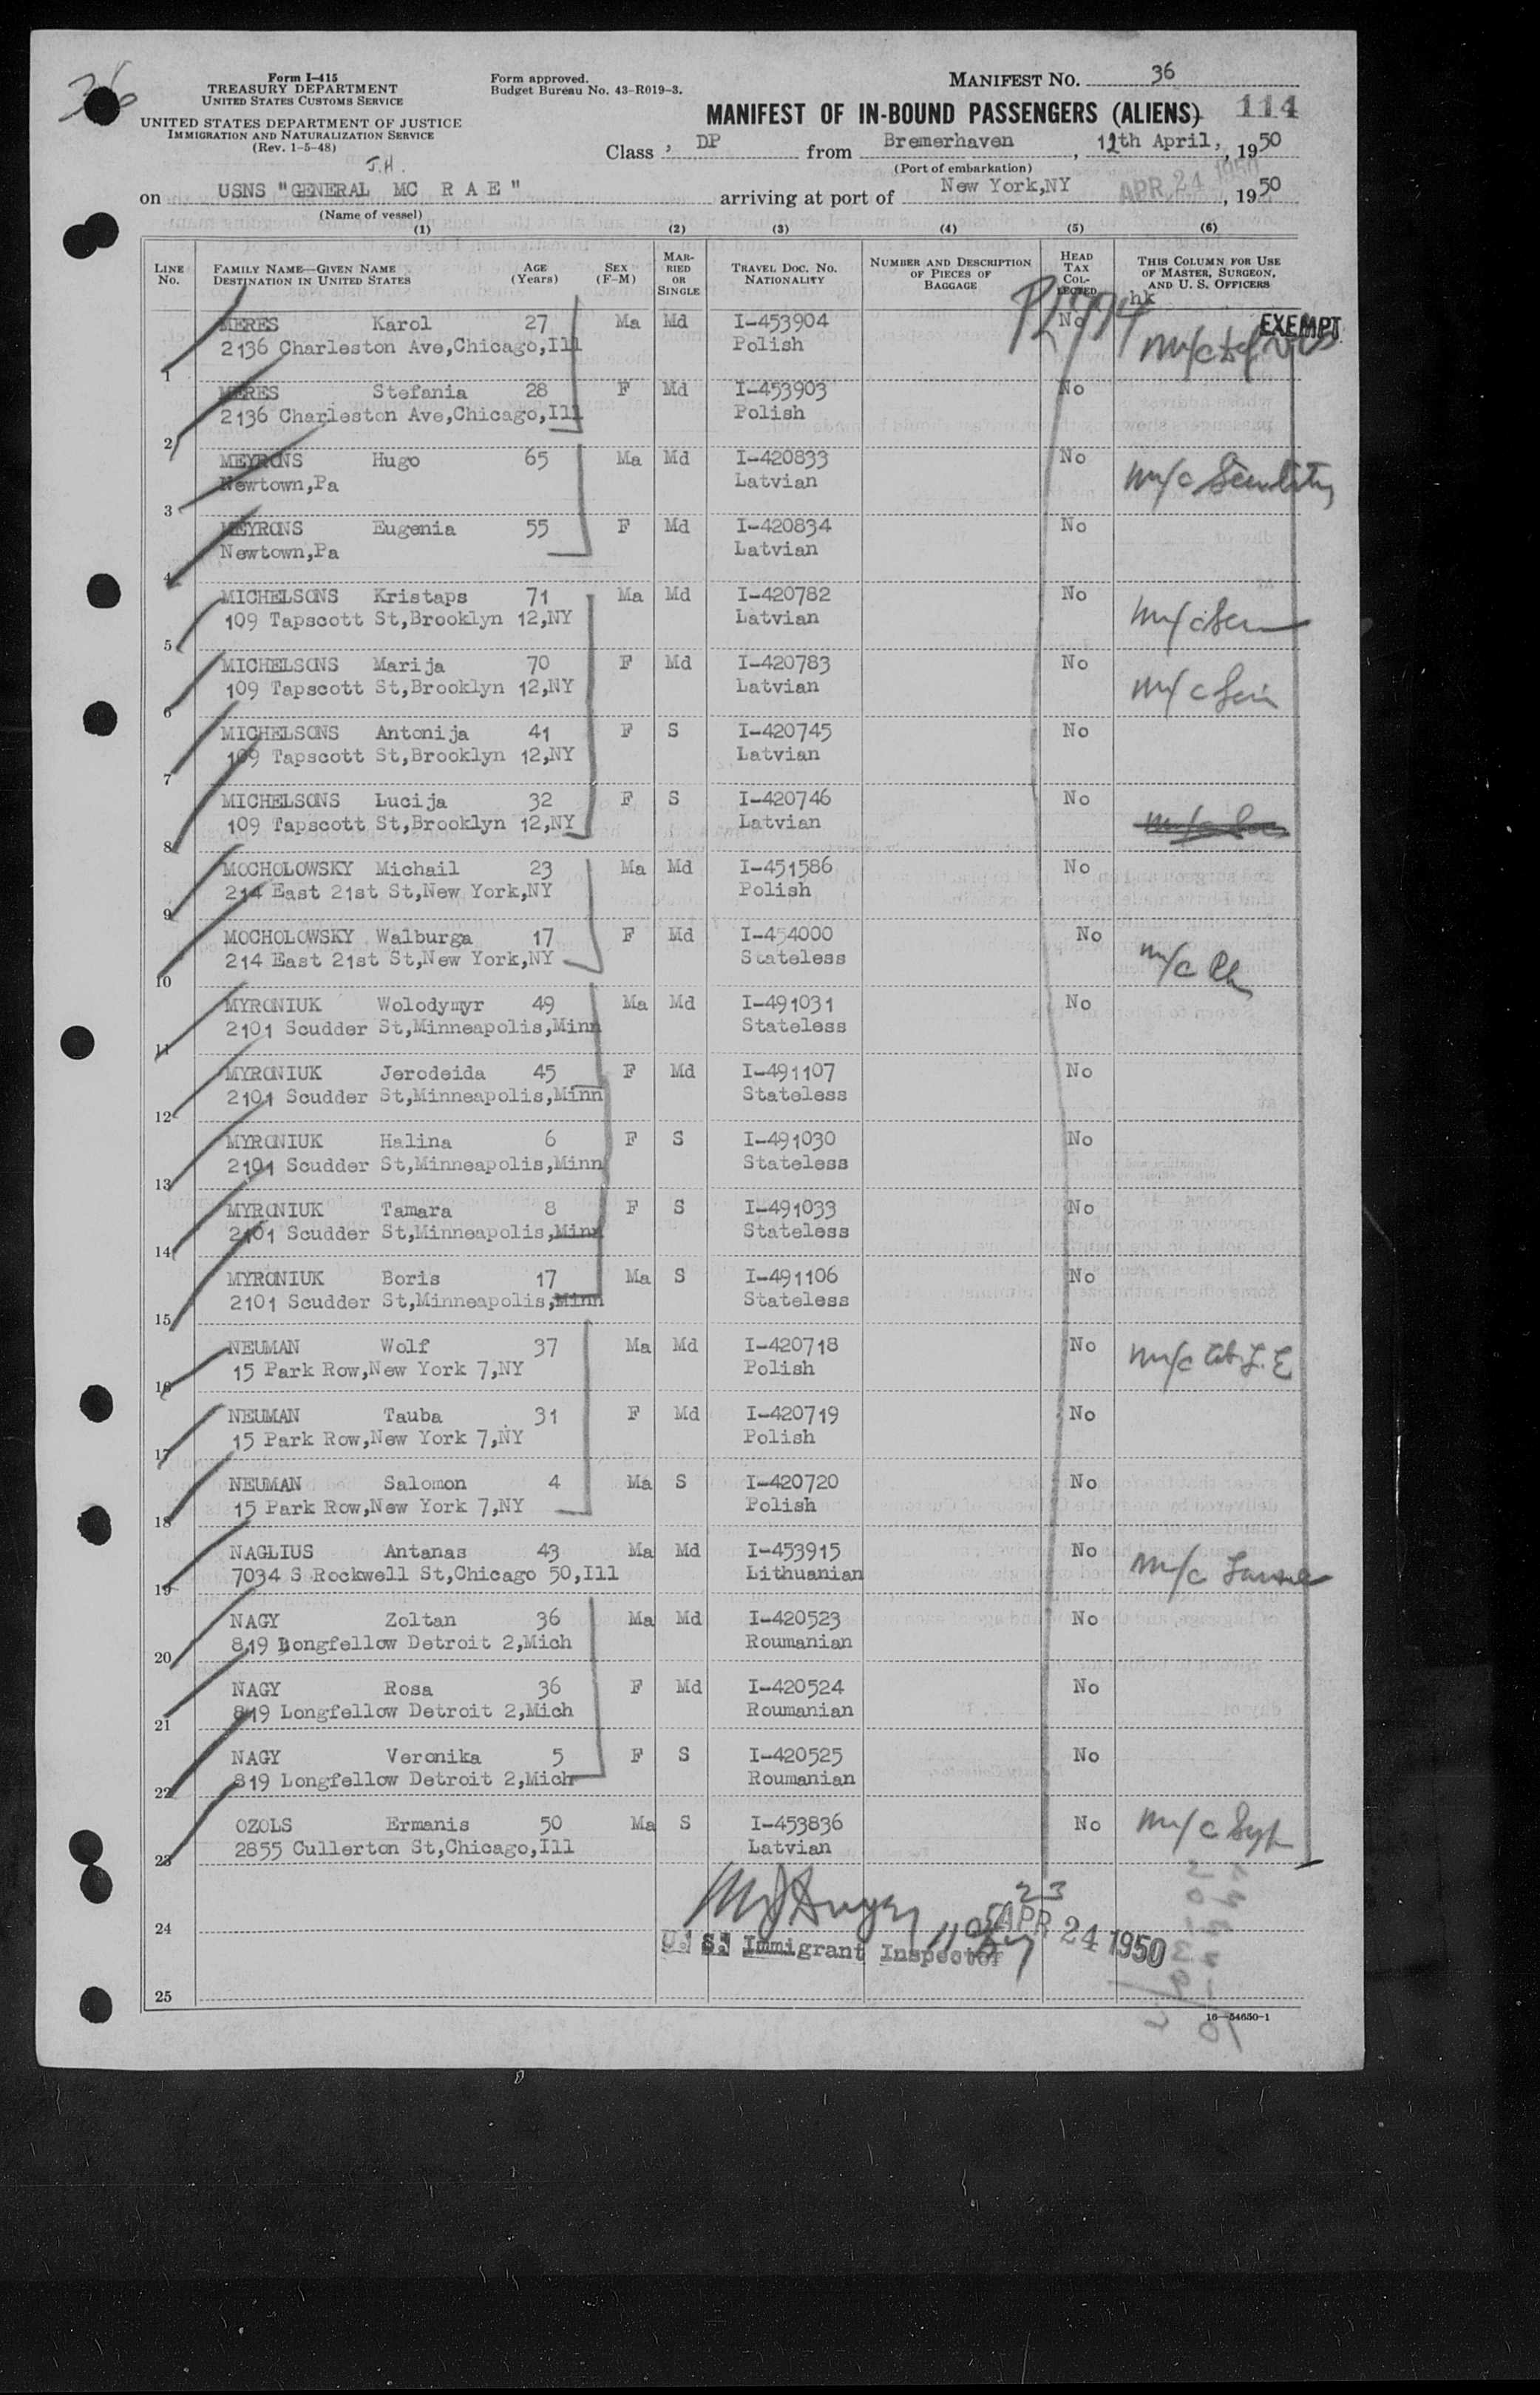 36
Form I-415
TREASURY DEPARTMENT
UNITED STATES CUSTOMS SERVICE
UNITED STATES DEPARTMENT OF JUSTICE
IMMIGRATION AND NATURALIZATION SERVICE
(Rev. 1-5-48)
Form approved.
Budget Bureau No. 43-R019-3.
MANIFEST NO. 36
MANIFEST OF IN-BOUND PASSENGERS (ALIENS) 114
Class DP from Bremerhaven, 11th April, 1950
(Port of embarkation)
J.H.
on USNS "GENERAL MC R A E" arriving at port of New York,NY APR 24 1950, 1950
(Name of vessel)
(1) (2) (3) (4) (5) (6)
LINE No. FAMILY NAME—GIVEN NAME DESTINATION IN UNITED STATES AGE (Years) SEX (F-M) MARRIED OR SINGLE TRAVEL DOC. NO. NATIONALITY NUMBER AND DESCRIPTION OF PIECES OF BAGGAGE HEAD TAX COLLECTED THIS COLUMN FOR USE OF MASTER, SURGEON, AND U. S. OFFICERS
hk
MERES Karol 27 Ma Md I-453904 No EXEMPT
1 2136 Charleston Ave,Chicago,Ill Polish
MERES Stefania 28 F Md I-453903 No
2 2136 Charleston Ave,Chicago,Ill Polish
MEYRONS Hugo 65 Ma Md I-420833 No
3 Newtown,Pa Latvian m/c
MEYRONS Eugenia 55 F Md I-420834 No
4 Newtown,Pa Latvian
MICHELSONS Kristaps 71 Ma Md I-420782 No
5 109 Tapscott St,Brooklyn 12,NY Latvian m/c Sen
MICHELSONS Marija 70 F Md I-420783 No
6 109 Tapscott St,Brooklyn 12,NY Latvian m/c Sen
MICHELSONS Antonija 41 F S I-420745 No
7 109 Tapscott St,Brooklyn 12,NY Latvian
MICHELSONS Lucija 32 F S I-420746 No
8 109 Tapscott St,Brooklyn 12,NY Latvian
MOCHOLOWSKY Michail 23 Ma Md I-451586 No
9 214 East 21st St,New York,NY Polish
MOCHOLOWSKY Walburga 17 F Md I-454000 No
10 214 East 21st St,New York,NY Stateless m/c
MYRONIUK Wolodymyr 49 Ma Md I-491031 No
11 2101 Scudder St,Minneapolis,Minn Stateless
MYRONIUK Jerodeida 45 F Md I-491107 No
12 2101 Scudder St,Minneapolis,Minn Stateless
MYRONIUK Halina 6 F S I-491030 No
13 2101 Scudder St,Minneapolis,Minn Stateless
MYRONIUK Tamara 8 F S I-491033 No
14 2101 Scudder St,Minneapolis,Minn Stateless
MYRONIUK Boris 17 Ma S I-491106 No
15 2101 Scudder St,Minneapolis,Minn Stateless
NEUMAN Wolf 37 Ma Md I-420718 No
16 15 Park Row,New York 7,NY Polish m/c
NEUMAN Tauba 31 F Md I-420719 No
17 15 Park Row,New York 7,NY Polish
NEUMAN Salomon 4 Ma S I-420720 No
18 15 Park Row,New York 7,NY Polish
NAGLIUS Antanas 43 Ma Md I-453915 No
19 7034 S Rockwell St,Chicago 50,Ill Lithuanian m/c
NAGY Zoltan 36 Ma Md I-420523 No
20 819 Longfellow Detroit 2,Mich Roumanian
NAGY Rosa 36 F Md I-420524 No
21 819 Longfellow Detroit 2,Mich Roumanian
NAGY Veronika 5 F S I-420525 No
22 819 Longfellow Detroit 2,Mich Roumanian
OZOLS Ermanis 50 Ma S I-453836 No m/c Syph
23 2855 Cullerton St,Chicago,Ill Latvian
23
24 APR 24 1950
U. S. Immigrant Inspector
25
16—54650-1